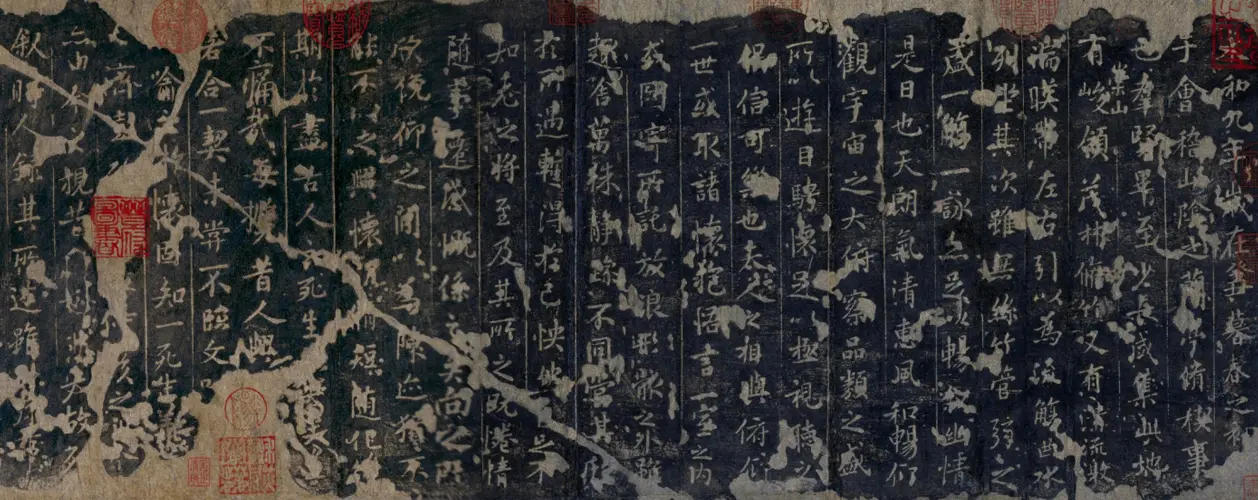 永和九年歲在癸丑暮春之初
于會稽山陰之蘭亭脩稧事
也羣賢畢至少長咸集此地
有崇山峻領茂林脩竹又有清流激
湍暎帶左右引以為流觴曲水
列坐其次雖無絲竹管弦之
盛一觴一詠亦足以暢叙幽情
是日也天朗氣清惠風和暢仰
觀宇宙之大俯察品類之盛
所以遊目騁懷足以極視聽之
娛信可樂也夫人之相與俯仰
一世或取諸懷抱悟言一室之內
或因寄所託放浪形骸之外雖
趣舍萬殊靜躁不同當其欣
於所遇蹔得於己怏然自足不
知老之將至及其所之既惓情
隨事遷感慨係之矣向之所
欣俛仰之閒以為陳迹猶不
能不以之興懷況脩短隨化終
期於盡古人云死生
不痛哉每攬昔人興
若合一契未嘗不臨文嗟
喻之懷固知一死生為
齊彭後之
亦由今視昔悲夫故列
叙時人錄其所述雖世殊